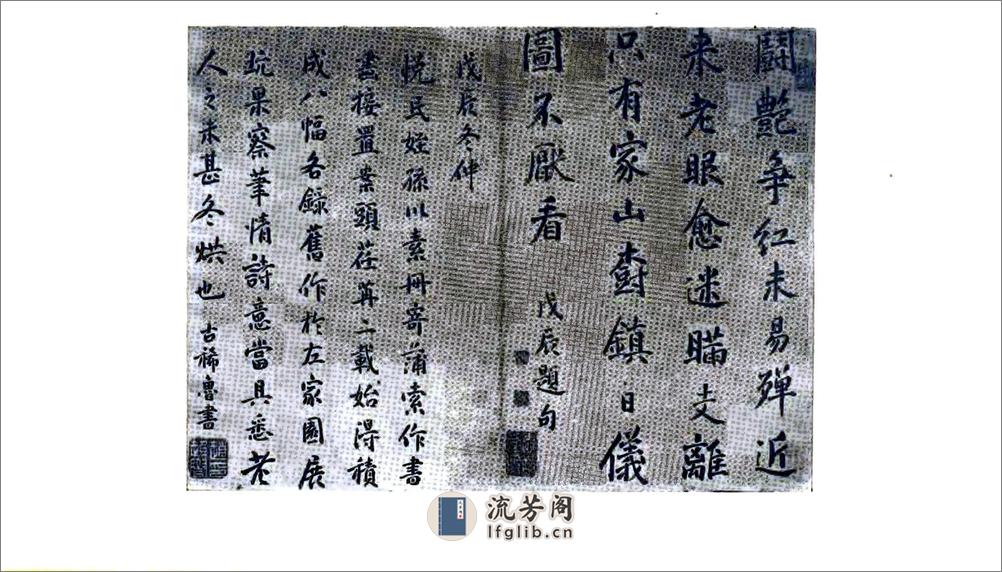 鬪艷爭紅未易殫近
来老眼愈迷瞞支離
只有家山樹鎮日儀
圖不厭看
戊辰題句
戊辰冬仲
悦民姪孫以素册寄蒲索作書
畫接置案頭荏苒二載始得積
成八幅各錄舊作於左家園展
玩果察筆情詩意當具悉老
人之未甚冬烘也 古稀魯書
流芳阁
lfglib.cn